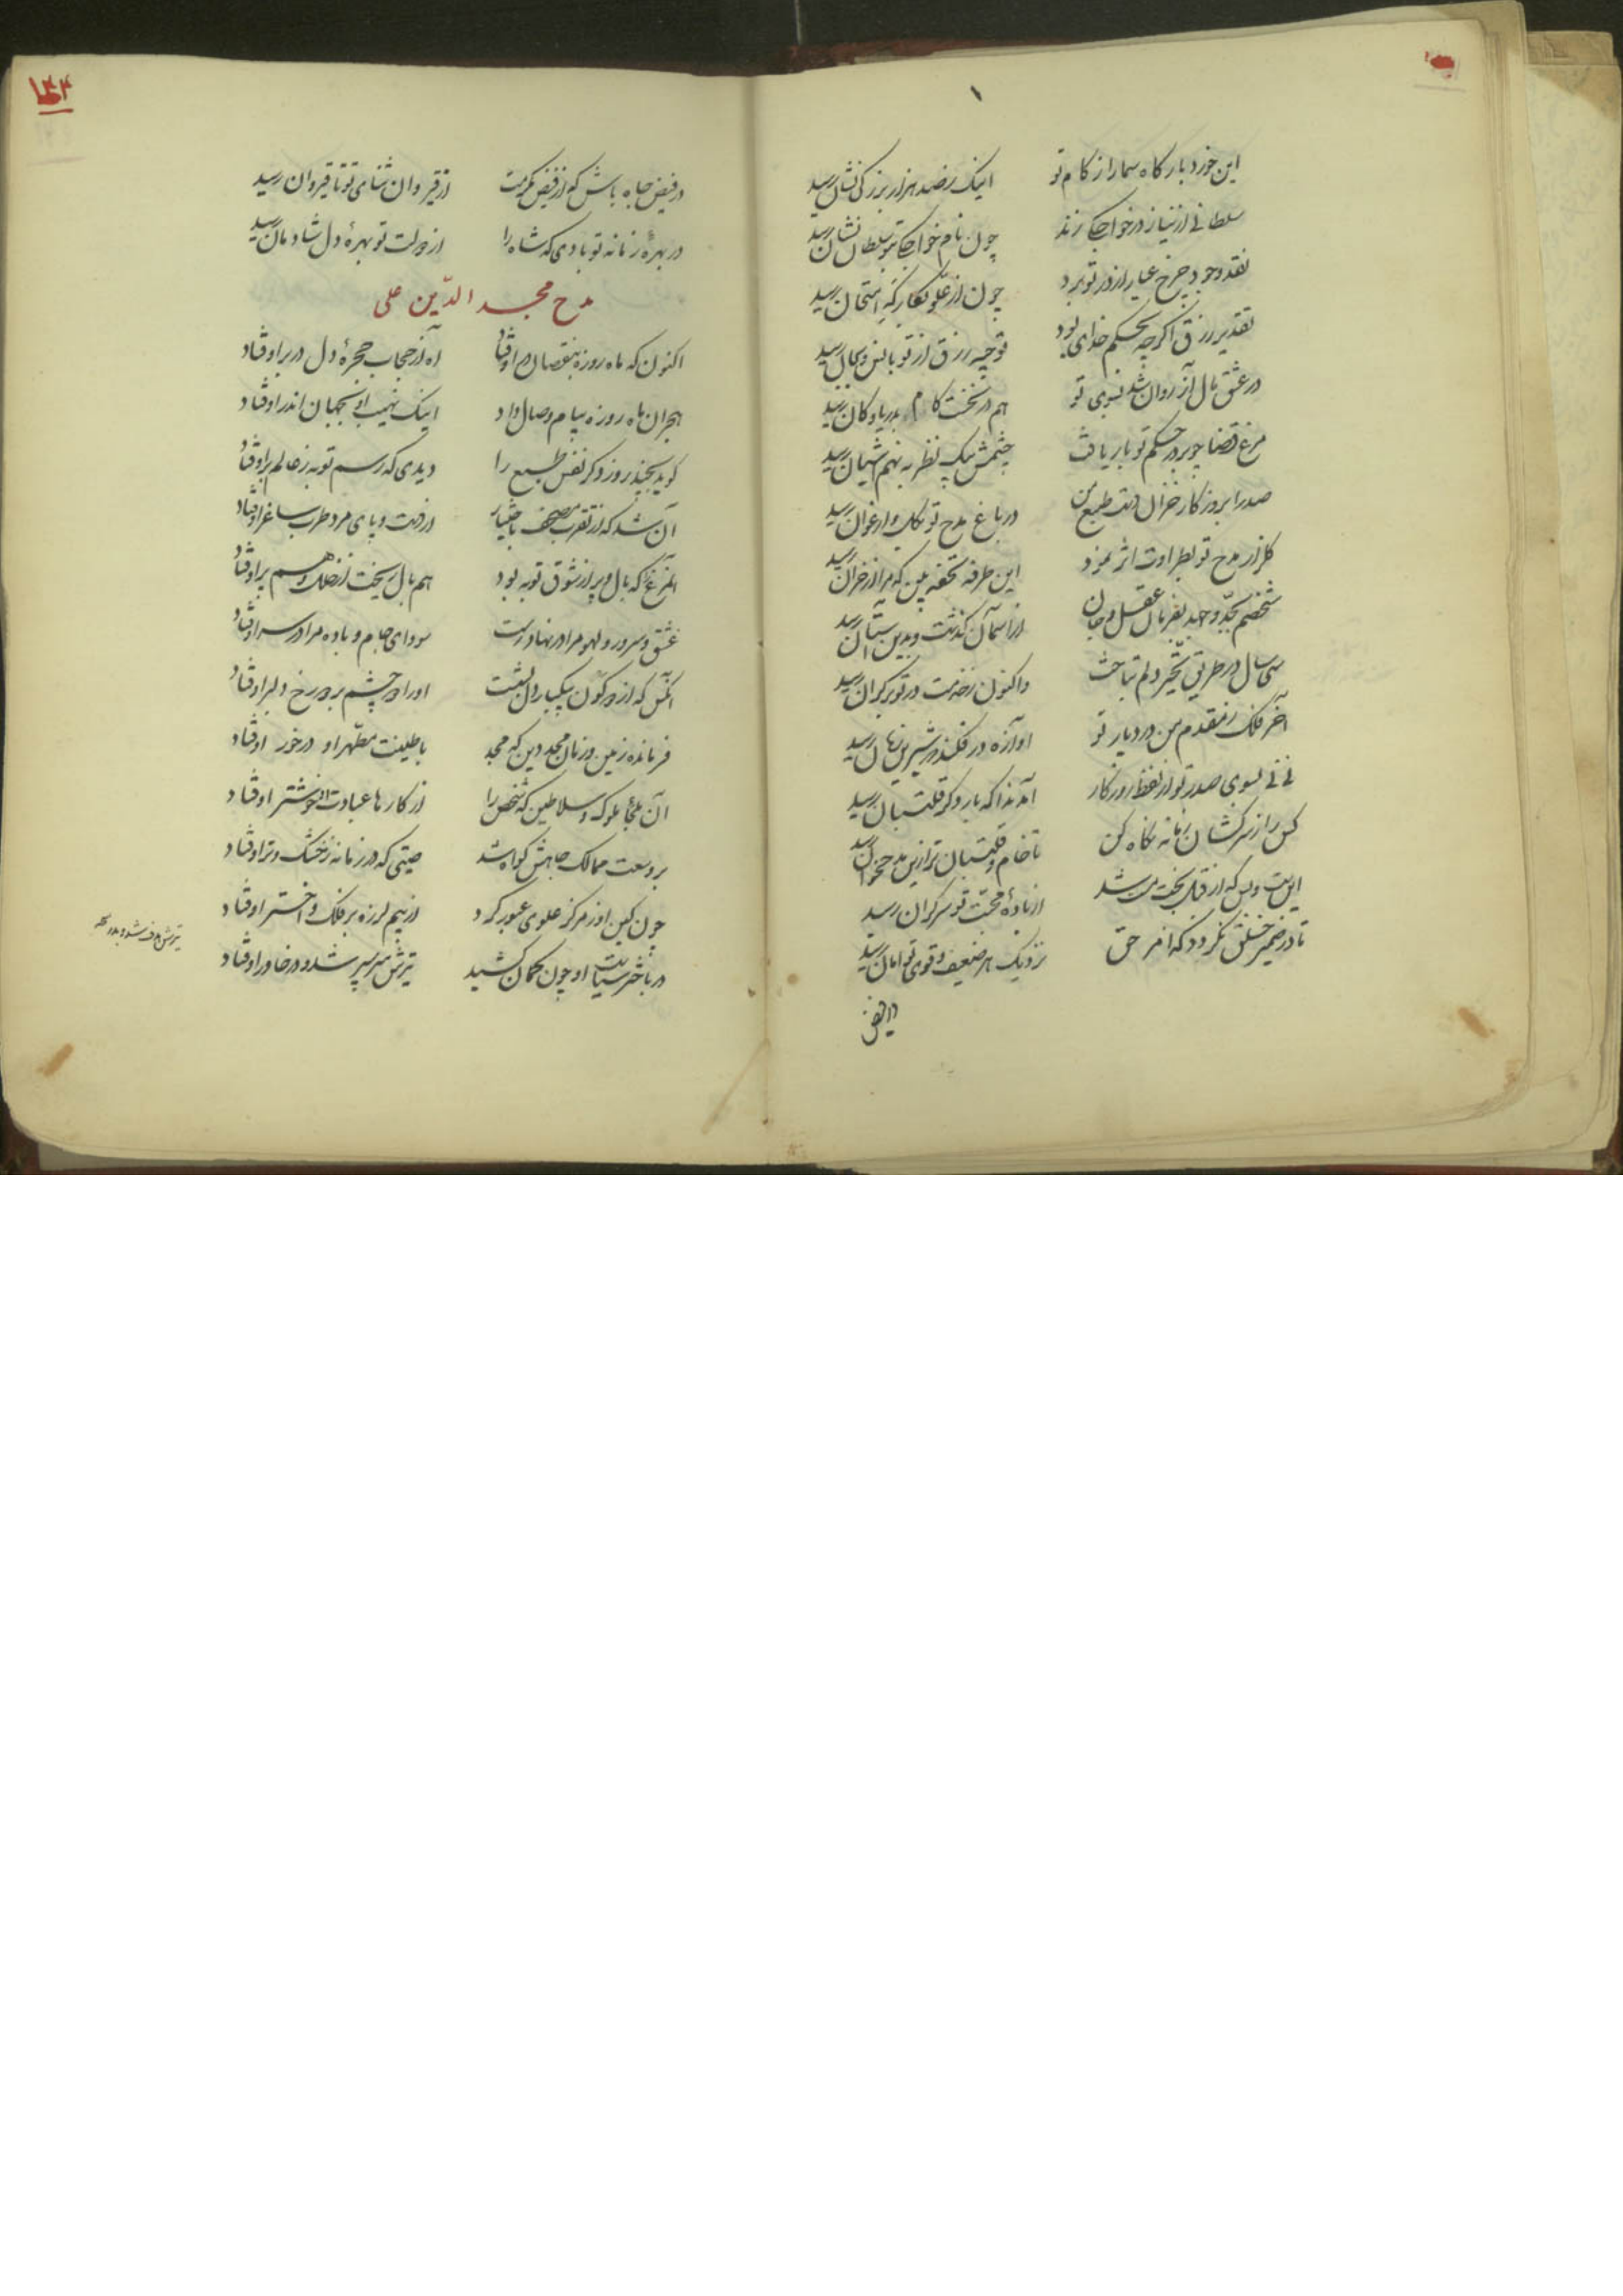 این خورد بارگاه سما را ز کام تو
اینک ز صد هزار بزرگی نشان رسید
سلطانی از نیاز در خواجگی زند
چون نام خواجگی تو سلطان نشان رسید
نقد وجود چرخ عیار از در تو برد
چون از علو بکار که امتحان رسید
تقدیر رزق اگرچه بحکم خدای بود
توجیه رزق از تو بانس و بجان رسید
در عشق مال آز روان شد بسوی تو
هم در نخست کام بدریا و کان رسید
مرغ قضا چو بر در حکم تو بار یافت
چشمش بیک نظر به نهم آشیان رسید
صدرا بروزگار خزان دست طبع من
در باغ مدح تو بگل و ارغوان رسید
گلزار مدح تو بطراوت اثر نمود
این طرفه تحفه بین که مرا از خزان رسید
شخصم بجد و جهد بفرمان عقل و جان
از آسمان گذشت و بدین آستان رسید
سی سال در طریق تحیر دلم بتاخت
واکنون ز خدمت در تو بر کران رسید
آخر فلک ز مقدم من در دیار تو
آوازه در فکند که شیرین زبان رسید
نی نی بسوی صدر تو از لفظ روزگار
آمد ندا که بار دگر قلتبان رسید
کس را ز سرکشان زمانه نگاه کن
تا خام قلتبان تر ازین مدح خوان رسید
این هست ولیک از قدح بخت مست شد
از باده محبت تو سرگران رسید
تا در ضمیر خلق نگردد که امر حق
نزدیک هر ضعیف و قوی توامان رسید
در فیض
۱۴۴
در فیض جاه باش که از فیض مکرمت
از قیروان ثنای تو تا قیروان رسید
در بهره زمانه تو بادی که شاه را
از دولت تو بهرهٔ دل شادمان رسید
مدح مجد الدّین علی
اکنون که ماه روزه بنقصان در اوفتاد
آه از حجاب حجرهٔ دل در بر اوفتاد
هجران ماه روزه پیام وصال داد
اینک نهیب او بجهان اندر اوفتاد
گوید بچند روز دگر نفس طبع را
دیدی که رسم توبه ز عالم بر اوفتاد
آن شد که از تقرب مصحف باختیار
از دست و پای مرد طرب ساغر اوفتاد
آنمرغ که بال و پر از شوق توبه بود
هم بال ریخت از خلل و هم پر اوفتاد
عشق و سرور و لهو مرا در نهاد رست
سودای جام و باده مرا در سر اوفتاد
آنکس که از دو کون بیکبار دل بشست
او را دو چشم بر دو رخ دلبر اوفتاد
فرمانده زمین و زمان مجد دین که مجد
با طینت مطهر او درخور اوفتاد
آن ملجأ ملوک و سلاطین که شخص را
از کارها عبادت او خوشتر اوفتاد
بر وسعت ممالک جاهش گواه شد
صیتی که در زمانه ز خشک و تر اوفتاد
چون کین او ز مرکز علوی عبور کرد
از بیم لرزه بر فلک و اختر اوفتاد
در باختر سیاست او چون کمان کشید
تیرش سپر سپر شد و در خاور اوفتاد